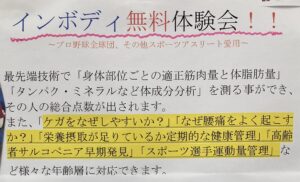 インボディ無料体験会！！
～プロ野球全球団、その他スポーツアスリート愛用～
最先端技術で「身体部位ごとの適正筋肉量と体脂肪量」
「タンパク・ミネラルなど体成分分析」を測る事ができ、
その人の総合点数が出されます。
また、「ケガをなぜしやすいか？」「なぜ腰痛をよく起こす
か？」「栄養摂取が足りているか定期的な健康管理」「高齢
者サルコペニア早期発見」「スポーツ選手運動量管理」な
ど様々な年齢層に対応できます。